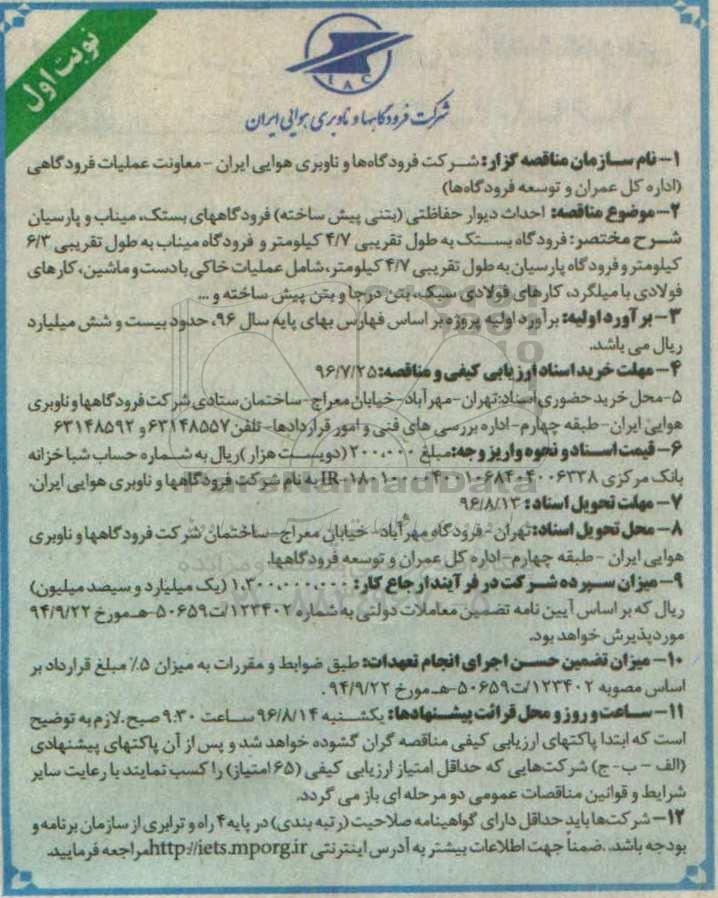 نوبت اول
IAC
شرکت فرودگاهها و ناوبری هوایی ایران
۱- نام سازمان مناقصه گزار: شرکت فرودگاه‌ها و ناوبری هوایی ایران - معاونت عملیات فرودگاهی
(اداره کل عمران و توسعه فرودگاه‌ها)
۲- موضوع مناقصه: احداث دیوار حفاظتی (بتنی پیش ساخته) فرودگاههای بستک، میناب و پارسیان
شرح مختصر: فرودگاه بستک به طول تقریبی ۴/۷ کیلومتر و فرودگاه میناب به طول تقریبی ۶/۳
کیلومتر و فرودگاه پارسیان به طول تقریبی ۴/۷ کیلومتر، شامل عملیات خاکی با دست و ماشین، کارهای
فولادی با میلگرد، کارهای فولادی سبک، بتن درجا و بتن پیش ساخته و ...
۳- برآورد اولیه: برآورد اولیه پروژه بر اساس فهارس بهای پایه سال ۹۶، حدود بیست و شش میلیارد
ریال می باشد.
۴- مهلت خرید اسناد ارزیابی کیفی و مناقصه: ۹۶/۷/۲۵
۵- محل خرید حضوری اسناد: تهران- مهرآباد- خیابان معراج- ساختمان ستادی شرکت فرودگاهها و ناوبری
هوایی ایران- طبقه چهارم- اداره بررسی های فنی و امور قراردادها- تلفن ۶۳۱۴۸۵۵۷ و ۶۳۱۴۸۵۹۲
۶- قیمت اسناد و نحوه واریز وجه: مبلغ ۲۰۰،۰۰۰ (دویست هزار) ریال به شماره حساب شبا خزانه
بانک مرکزی به نام شرکت فرودگاهها و ناوبری هوایی ایران.
۷- مهلت تحویل اسناد: ۹۶/۸/۱۳
۸- محل تحویل اسناد: تهران- فرودگاه مهرآباد- خیابان معراج- ساختمان شرکت فرودگاهها و ناوبری
هوایی ایران - طبقه چهارم- اداره کل عمران و توسعه فرودگاهها.
۹- میزان سپرده شرکت در فرآیند ارجاع کار: ۱،۳۰۰،۰۰۰،۰۰۰ (یک میلیارد و سیصد میلیون)
ریال که بر اساس آیین نامه تضمین معاملات دولتی به شماره ۱۲۳۴۰۲/ت۵۰۶۵۹-هـ مورخ ۹۴/۹/۲۲
مورد پذیرش خواهد بود.
۱۰- میزان تضمین حسن اجرای انجام تعهدات: طبق ضوابط و مقررات به میزان ۵٪ مبلغ قرارداد بر
اساس مصوبه ۱۲۳۴۰۲/ت۵۰۶۵۹-هـ مورخ ۹۴/۹/۲۲.
۱۱- ساعت و روز و محل قرائت پیشنهادها: یکشنبه ۹۶/۸/۱۴ ساعت ۹:۳۰ صبح. لازم به توضیح
است که ابتدا پاکتهای ارزیابی کیفی مناقصه گران گشوده خواهد شد و پس از آن پاکتهای پیشنهادی
(الف - ب - ج) شرکت‌هایی که حداقل امتیاز ارزیابی کیفی (۶۵ امتیاز) را کسب نمایند با رعایت سایر
شرایط و قوانین مناقصات عمومی دو مرحله ای باز می گردد.
۱۲- شرکت‌ها باید حداقل دارای گواهینامه صلاحیت (رتبه بندی) در پایه ۴ راه و ترابری از سازمان برنامه و
بودجه باشد. .ضمناً جهت اطلاعات بیشتر به آدرس اینترنتی http://iets.mporg.ir مراجعه فرمایید.
ParsNamadData